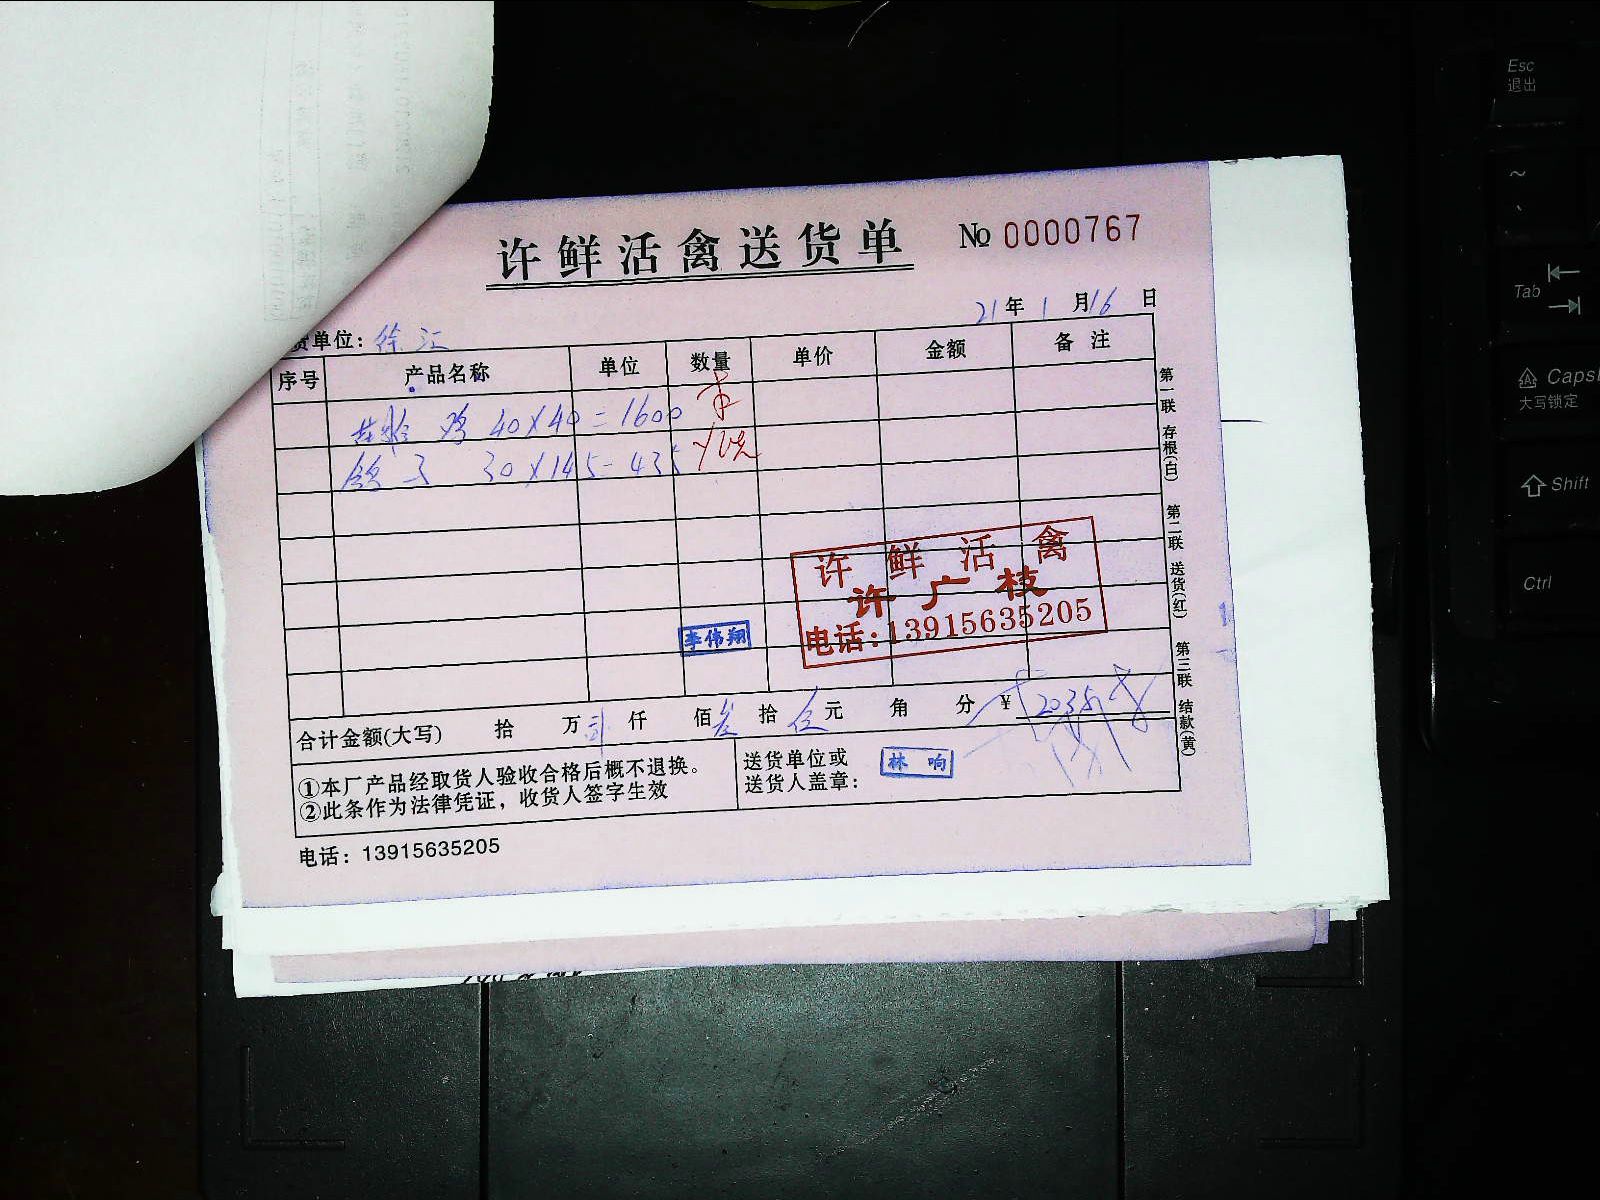 许鲜活禽送货单 № 0000767
21年1月16日
货单位：徐汇
序号 产品名称 单位 数量 单价 金额 备注
鸡 40×40=1600
鸽子 30×145=435
许鲜活禽
许广枝
电话：13915635205
李伟翔
合计金额(大写) 拾 万 贰 仟 佰 叁 拾 伍 元 角 分 ¥ 2035
①本厂产品经取货人验收合格后概不退换。
②此条作为法律凭证，收货人签字生效
送货单位或
送货人盖章：
林响
电话：13915635205
第一联 存根(白) 第二联 送货(红) 第三联 结款(黄)
Esc
退出
~
Tab
Caps
大写锁定
Shift
Ctrl